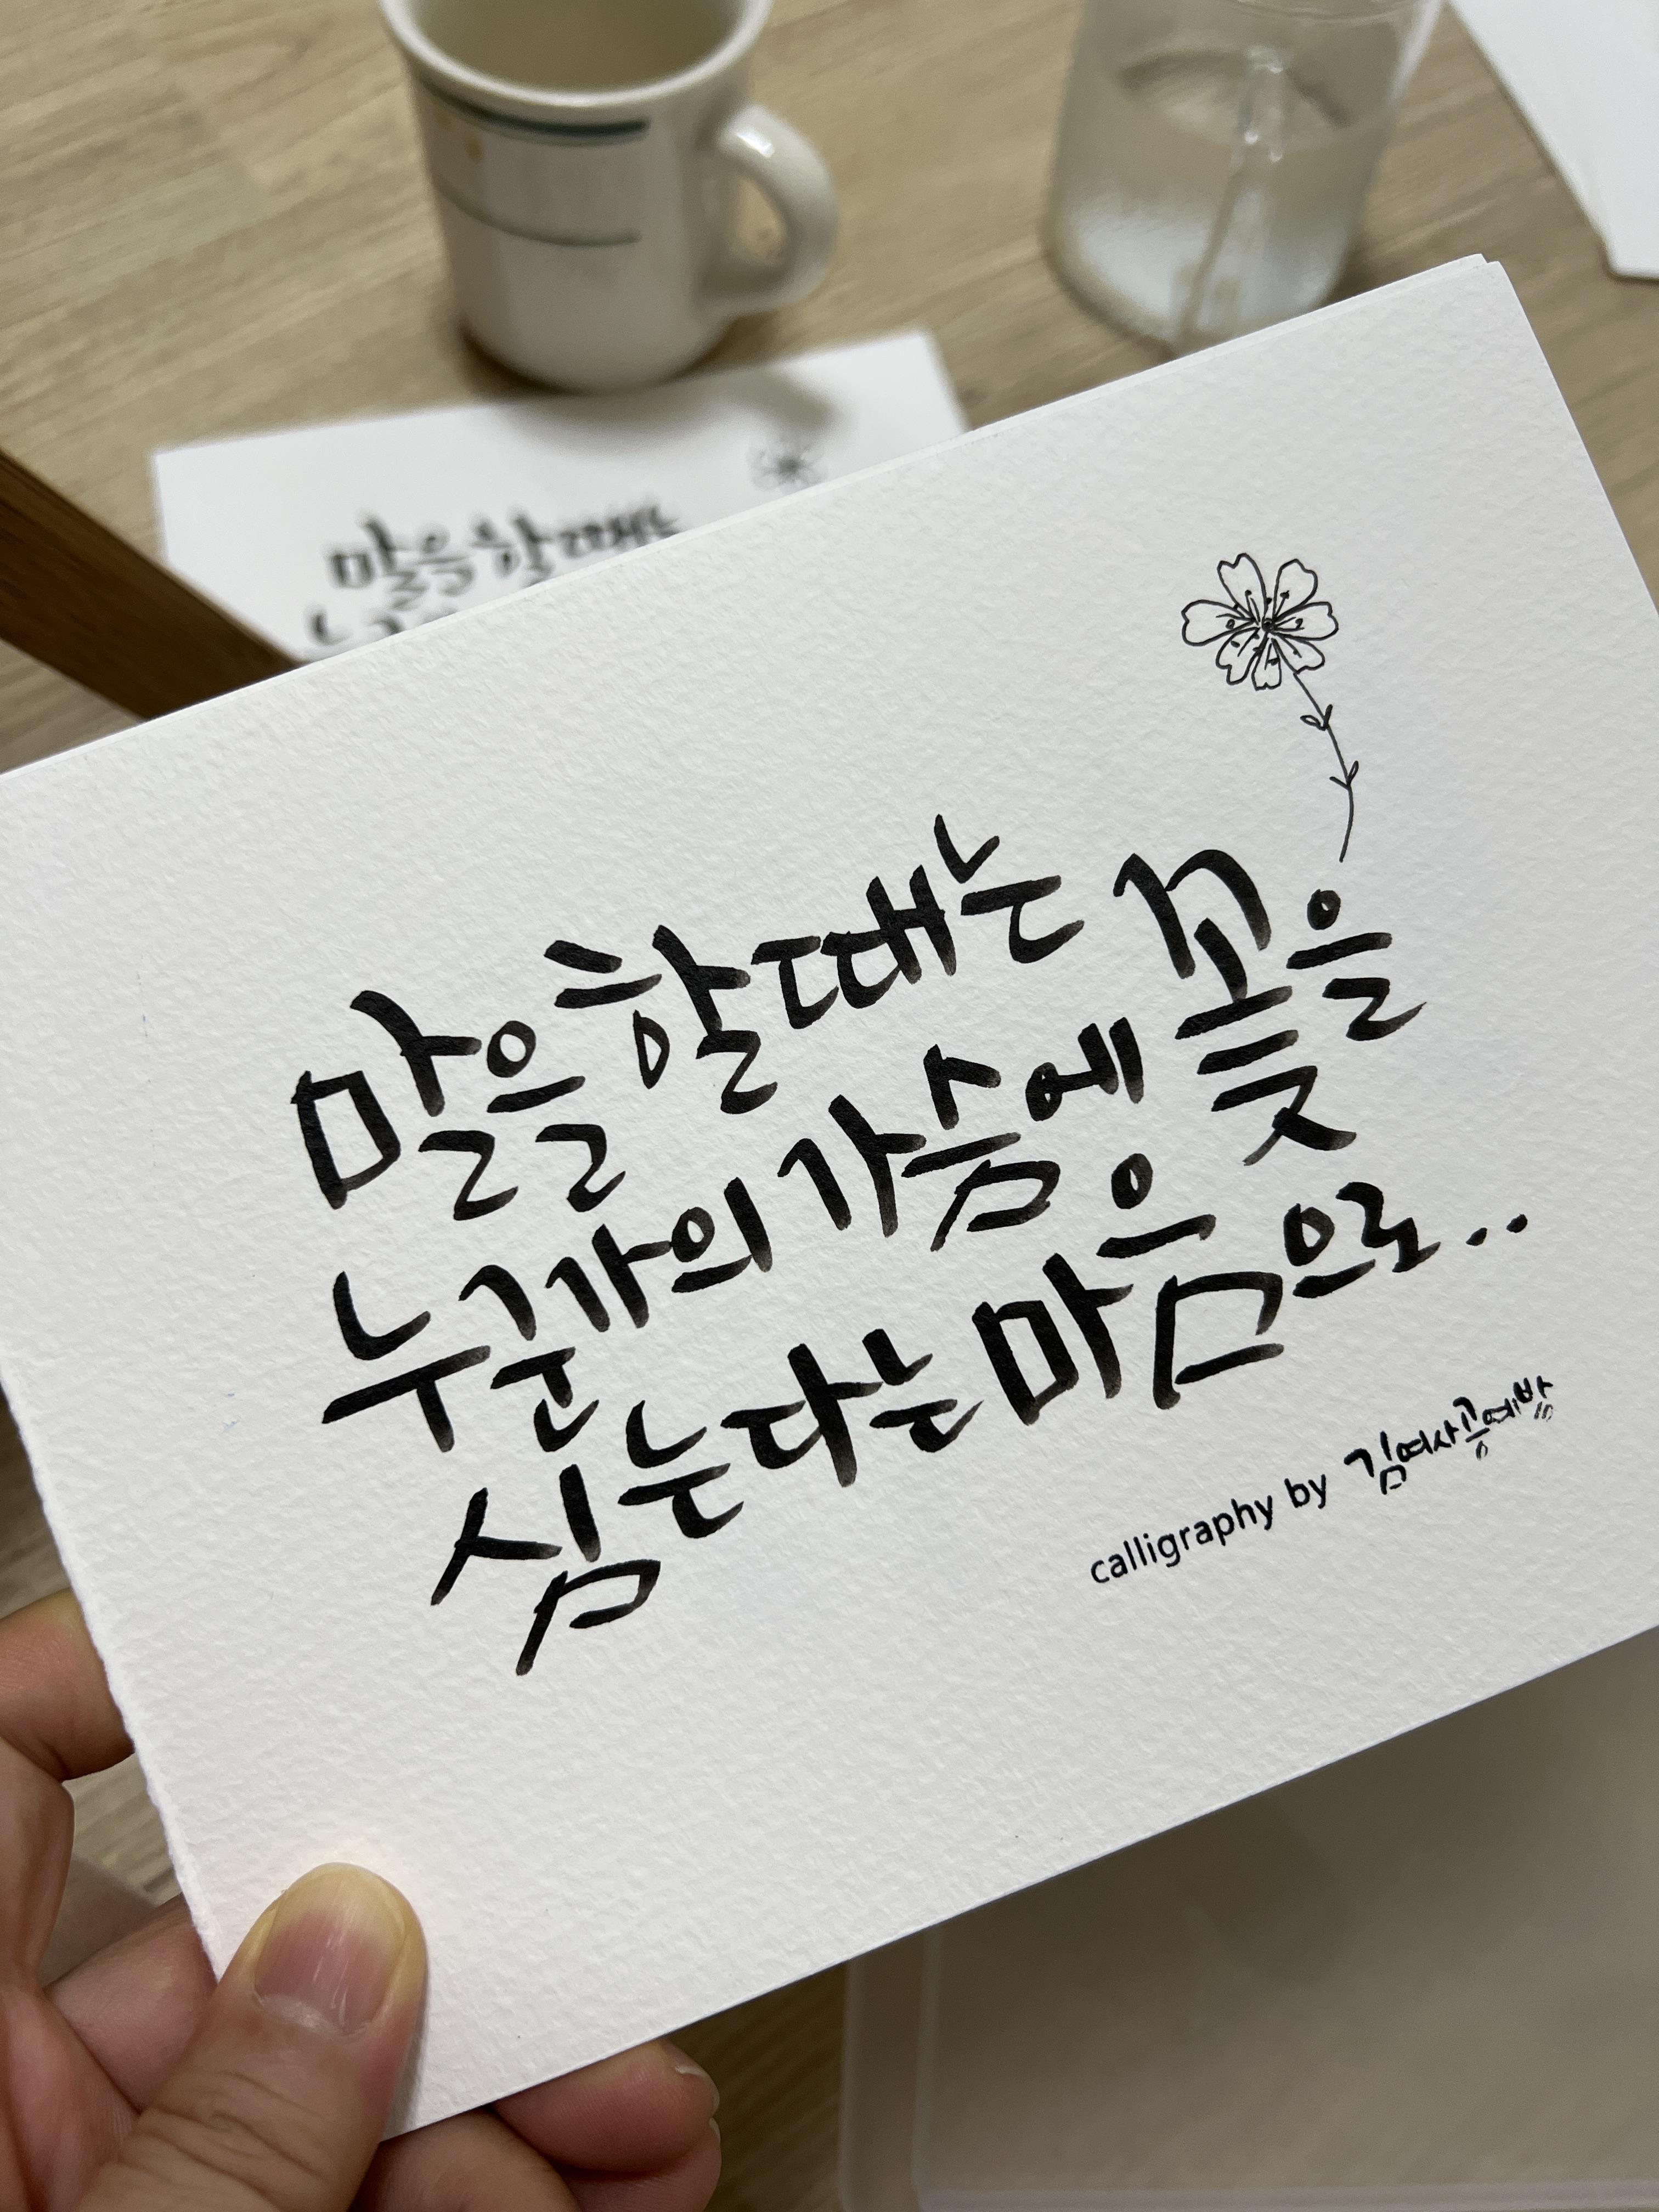 말을 할때는
말을 할때는
누군가의 가슴에 꽃을
심는다는 마음으로..
calligraphy by 김여사공예방